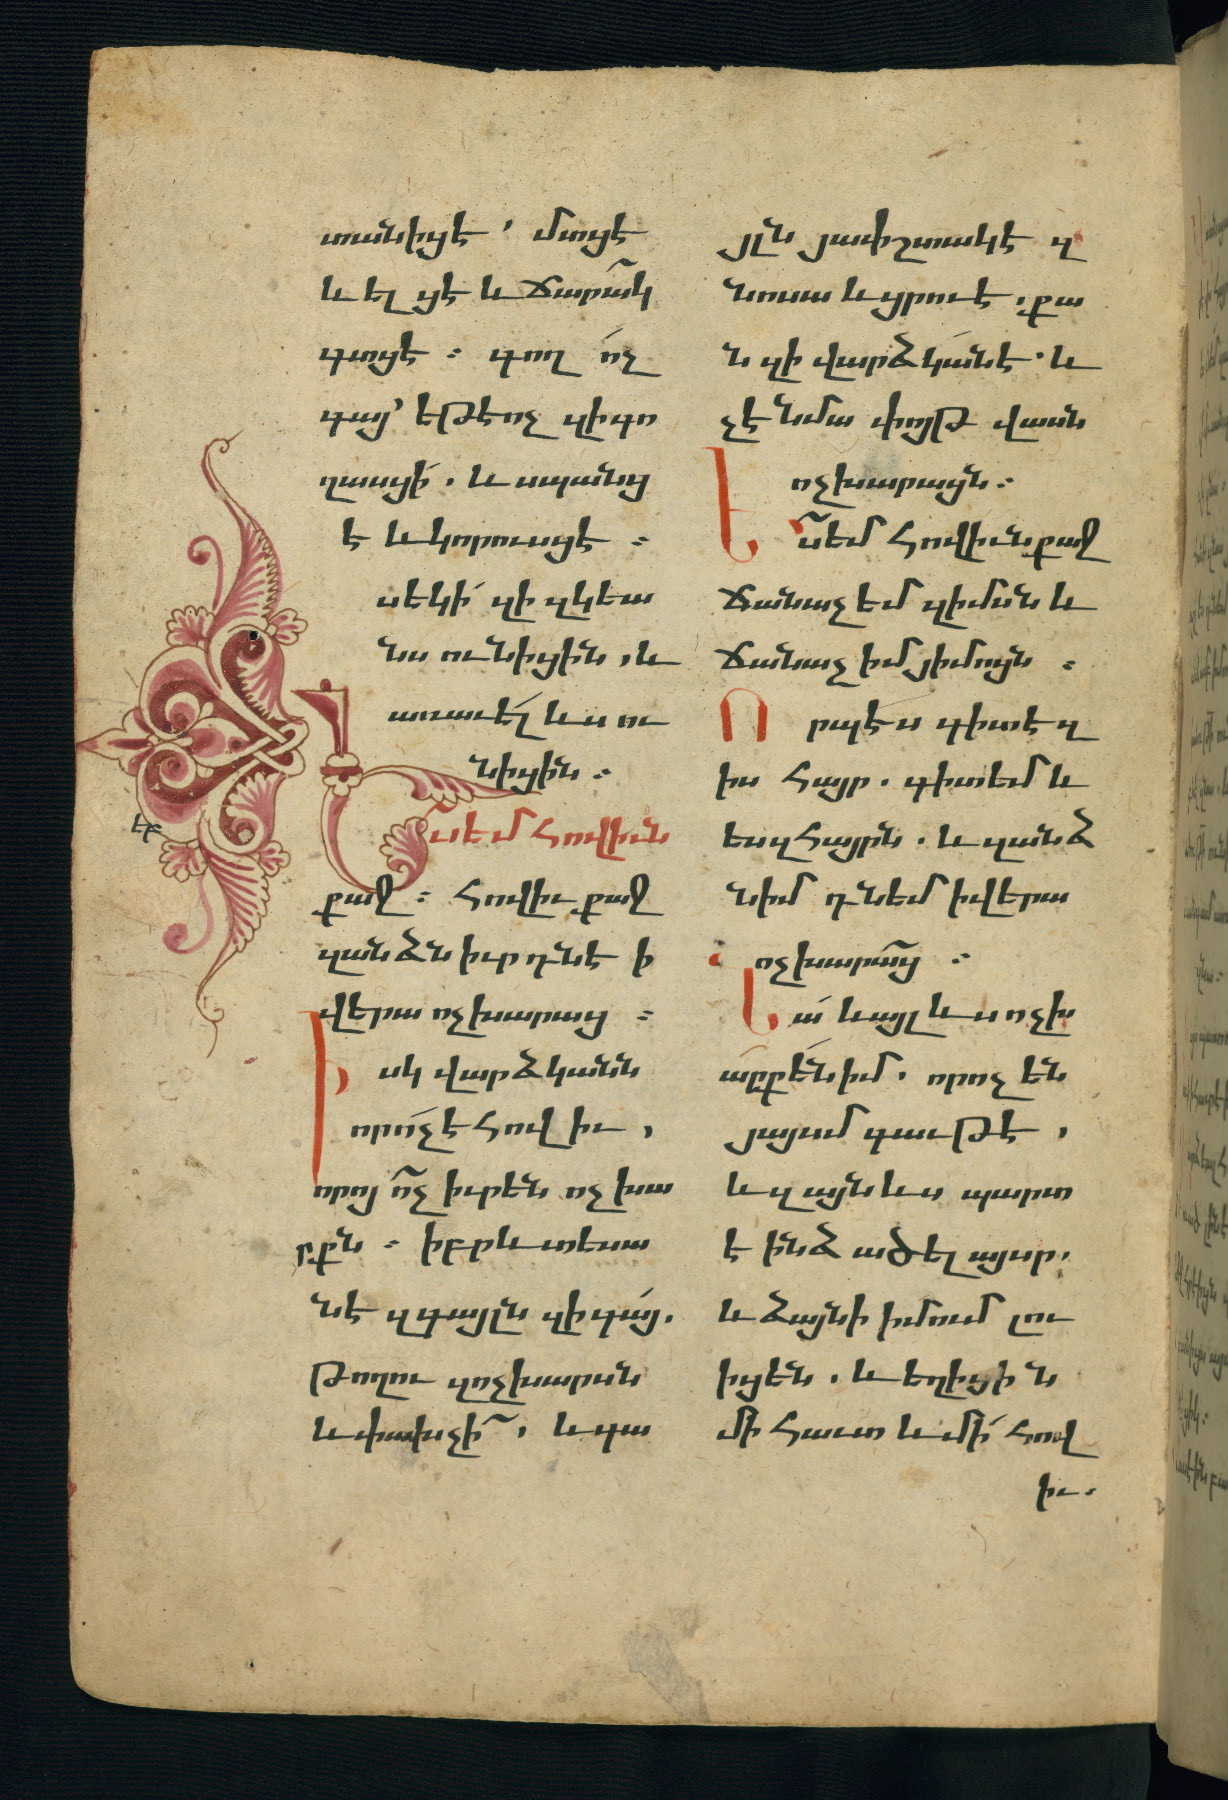 տանիցէ՝ մտցէ
և ել ցէ և ճարա՟կ
գտցէ ։ գող ո՛չ
գայ՝ եթէ ոչ զի գո
ղասցի՛ . և սպանց
է և կորուսցէ ։
սեկի՛ զի զկեա
նս ունիցին , և
առաւե՛լ ևս ու
նիցին ։
Ես՟եմ հովիւն
քաջ ։ հովիւ քաջ
զանձն իւր դնէ ի
վերա ոչխարաց ։
Իսկ վարձկանն
որո՛չէ հով իւ ,
որոյ ո՟չ իւրեն ոչ խա
րքն ։ իբրև տեսա
նէ զգայլն զի գա՛յ .
թողու զոչխարսն
և փախչի՟ , և գա
յլն յափշտակէ զ
նոսա և ցրուէ . քա
ն զի վարձկա՛նէ . և
չէ նմա փոյթ վասն
ոչխարացն ։
Ես՟եմ հովիւն քաջ
ճանաչ եմ զիմսն և
ճանաչ իմ յիմոցն ։
Որպէս գիտէ զ
իս հայր . գիտեմ և
ես զհայրն . և զանձ
նիմ դնեմ ի վերա
ոչխարա՟ց ։
Եւ ա՛ և այլ ևս ոչխ
ա՛րքե՛ն իմ . որոչ են
յայսմ գաւթէ ,
և զ այն ևս պարտ
է ինձ ածել այսր ,
և ձայնի իմում լու
իցեն . և եղիցի ն
մի հաւտ և մի՛ հով
իւ .
եբ